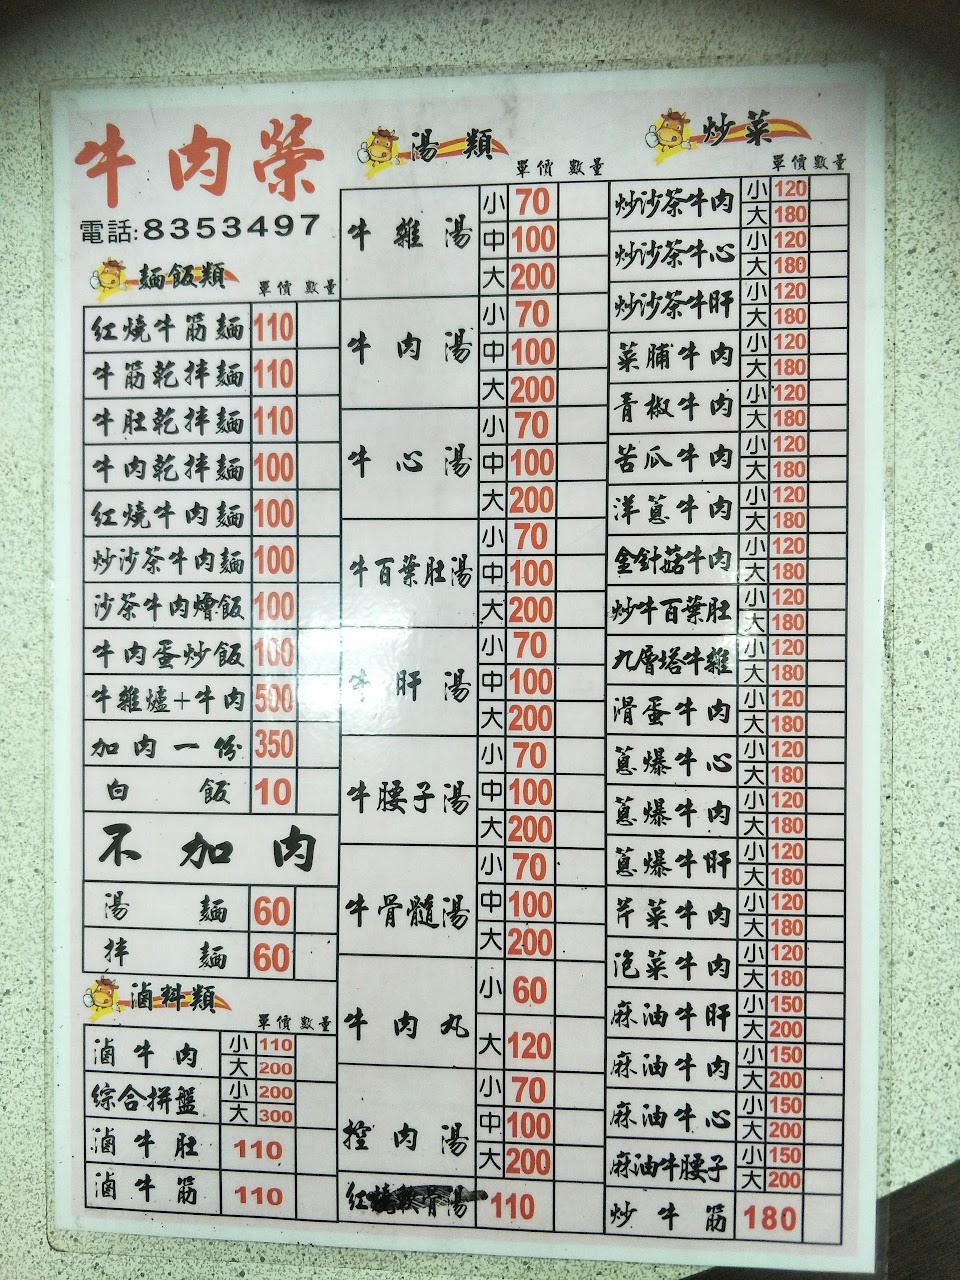 牛肉榮
電話:8353497
麵飯類
單價 數量
紅燒牛筋麵 110
牛筋乾拌麵 110
牛肚乾拌麵 110
牛肉乾拌麵 100
紅燒牛肉麵 100
炒沙茶牛肉麵 100
沙茶牛肉燴飯 100
牛肉蛋炒飯 100
牛雜爐+牛肉 500
加肉一份 350
白飯 10
不加肉
湯麵 60
拌麵 60
滷料類
單價 數量
滷牛肉 小 110
大 200
綜合拼盤 小 200
大 300
滷牛肚 110
滷牛筋 110
湯類
單價 數量
牛雜湯 小 70
中 100
大 200
牛肉湯 小 70
中 100
大 200
牛心湯 小 70
中 100
大 200
牛百葉肚湯 小 70
中 100
大 200
牛肝湯 小 70
中 100
大 200
牛腰子湯 小 70
中 100
大 200
牛骨髓湯 小 70
中 100
大 200
牛肉丸 小 60
大 120
控肉湯 小 70
中 100
大 200
紅燒軟骨湯 110
炒菜
單價 數量
炒沙茶牛肉 小 120
大 180
炒沙茶牛心 小 120
大 180
炒沙茶牛肝 小 120
大 180
菜脯牛肉 小 120
大 180
青椒牛肉 小 120
大 180
苦瓜牛肉 小 120
大 180
洋蔥牛肉 小 120
大 180
金針菇牛肉 小 120
大 180
炒牛百葉肚 小 120
大 180
九層塔牛雜 小 120
大 180
滑蛋牛肉 小 120
大 180
蔥爆牛心 小 120
大 180
蔥爆牛肉 小 120
大 180
蔥爆牛肝 小 120
大 180
芹菜牛肉 小 120
大 180
泡菜牛肉 小 120
大 180
麻油牛肝 小 150
大 200
麻油牛肉 小 150
大 200
麻油牛心 小 150
大 200
麻油牛腰子 小 150
大 200
炒牛筋 180